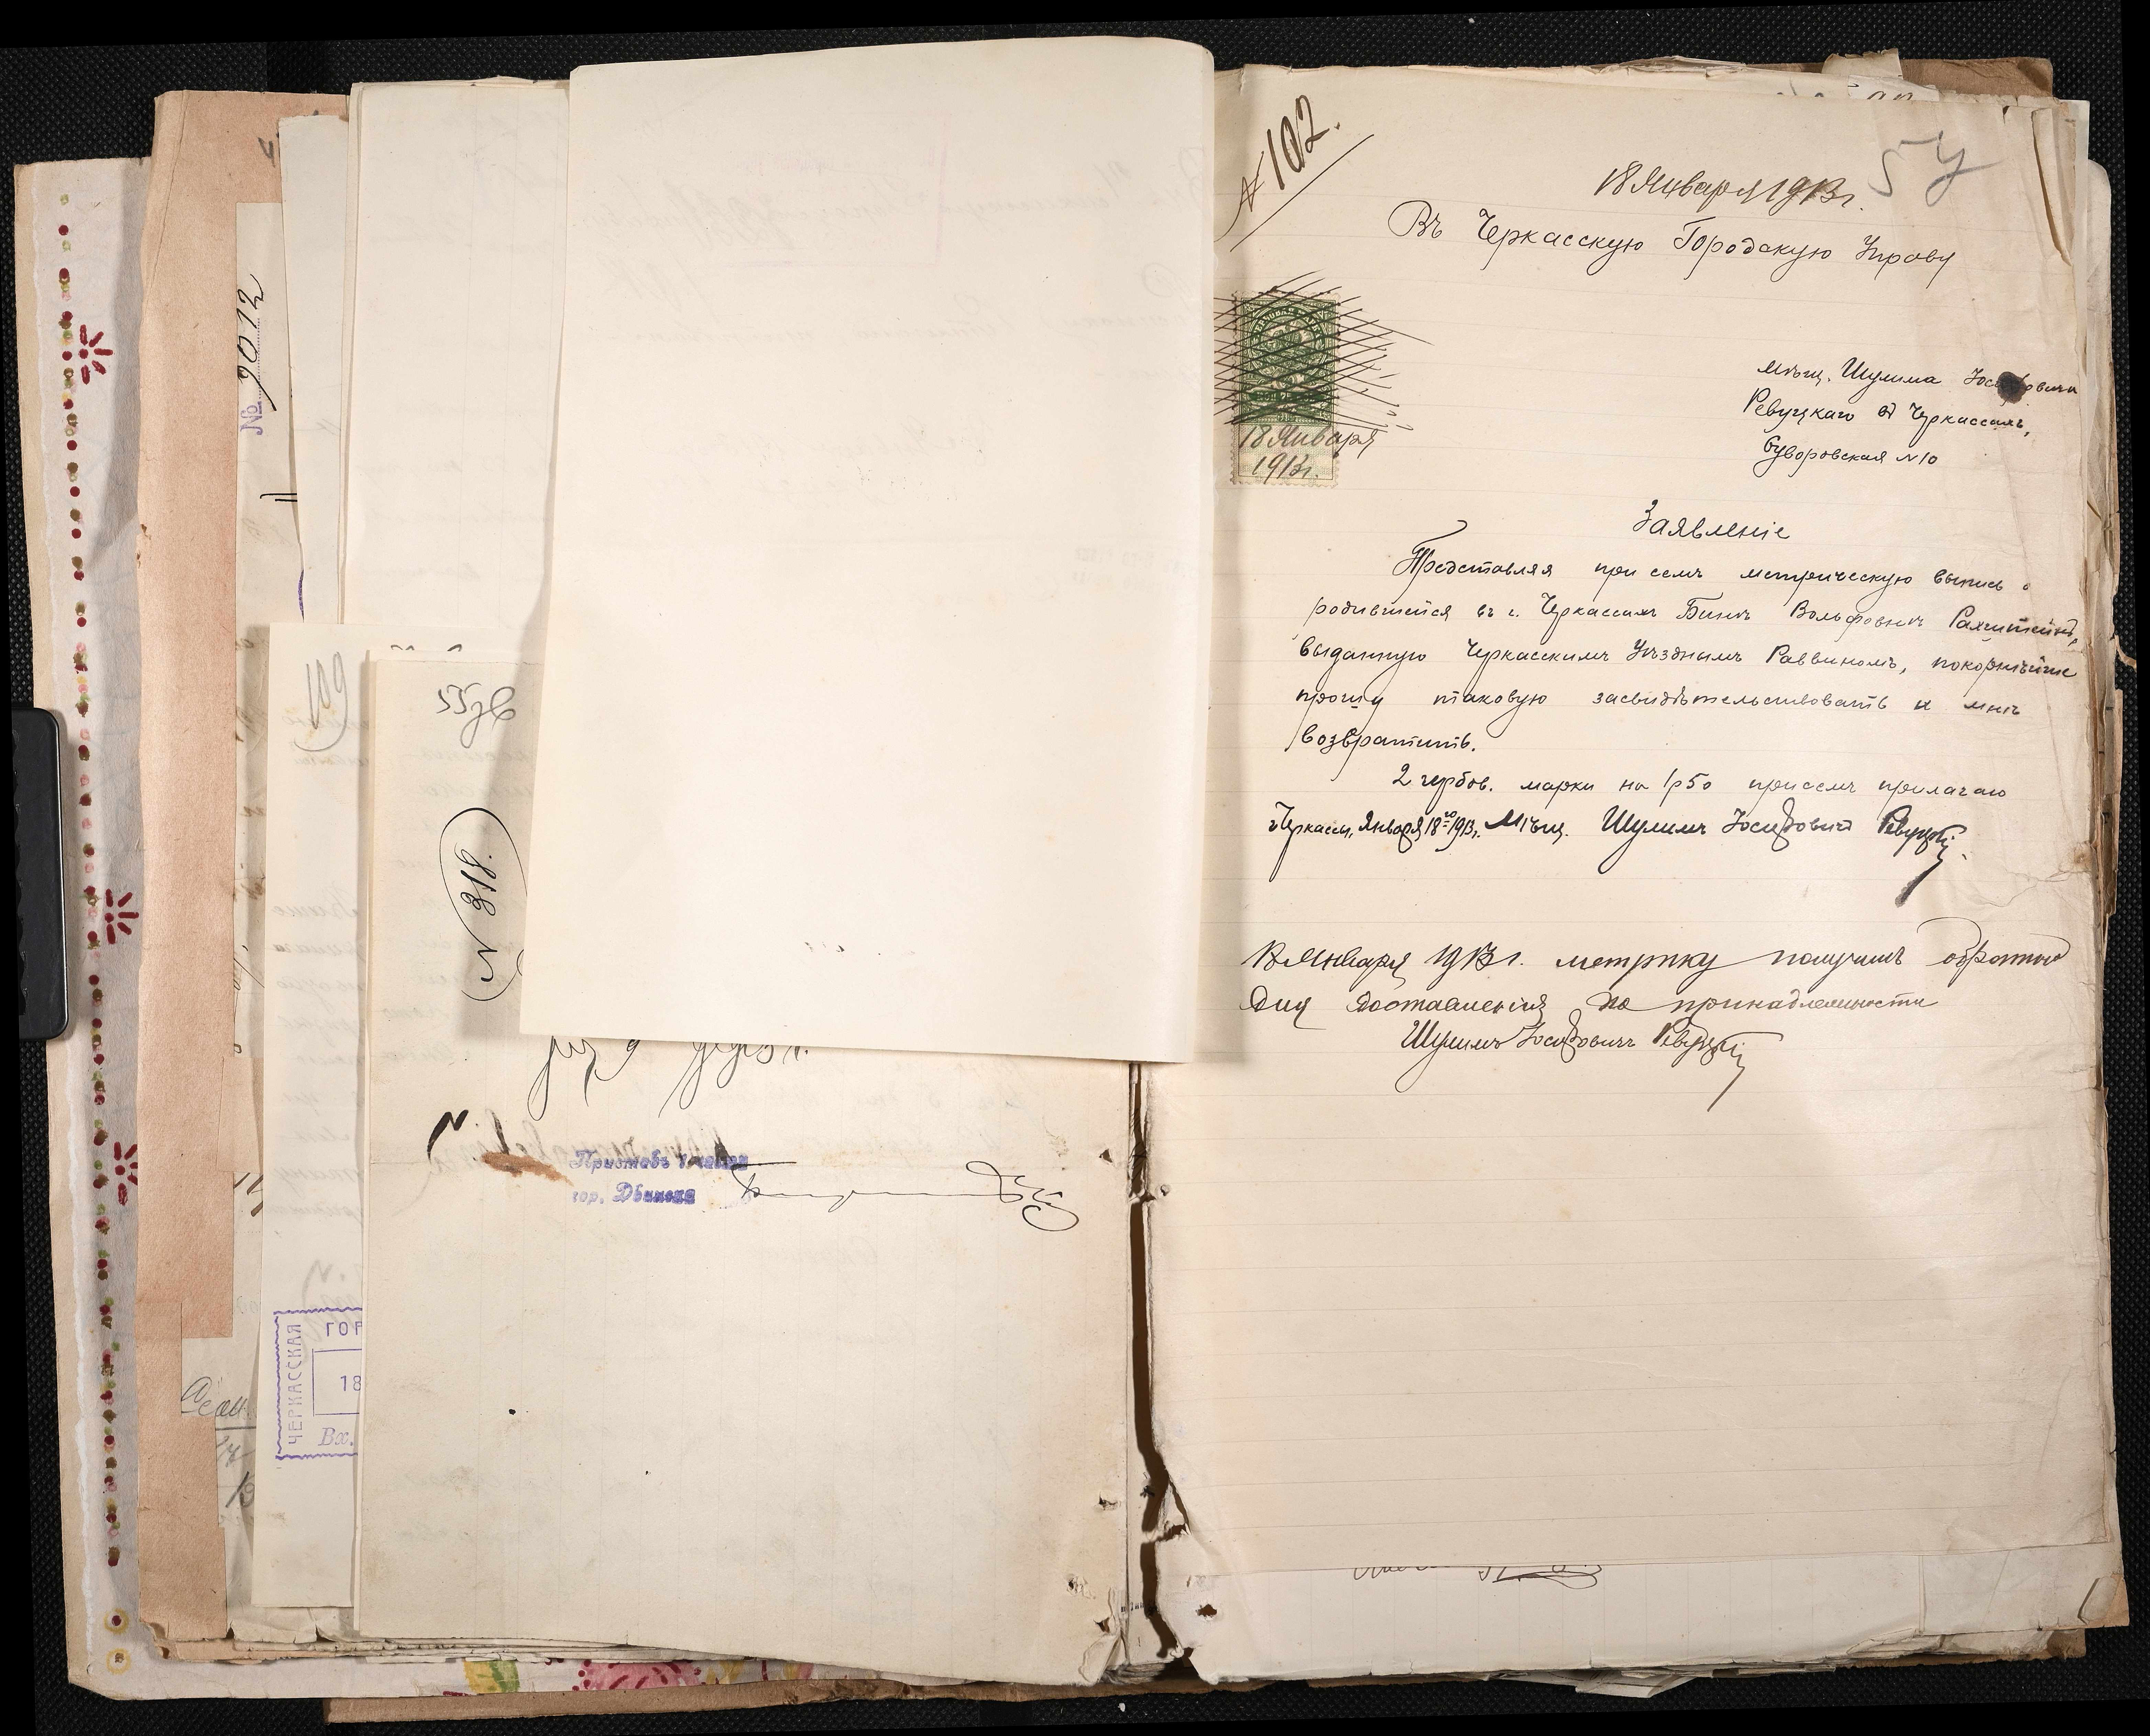 № 9012
109
55 зв
N 319.
Приставъ 1 части
гор. Двинска
ЧЕРКАССКАЯ
ГОР
18
Вх.
№ 102.
54
18 Января 1913 г.
Въ Черкасскую Городскую Управу
18 Января
1913 г.
мѣщ. Шулима Іосифовича
Ревуцкаго въ Черкассахъ,
Суворовская N 10
Заявленіе
Представляя при семъ метрическую выпись о
родившейся въ г. Черкассахъ Бинѣ Вольфовнѣ
выданную Черкасскимъ Уѣзднымъ Раввиномъ, покорнѣйше
прошу таковую засвидѣтельствовать и мнѣ
возвратить.
2 гербов. марки на 1 р 50 при семъ прилагаю
г. Черкассы, Января 18го 1913 г. Мѣщ. Шулимъ Іосифовичъ Ревуцкій
18 Января 1913 г. метрику получилъ обратно
для доставленія по принадлежности
Шулимъ Іосифовичъ Ревуцкій